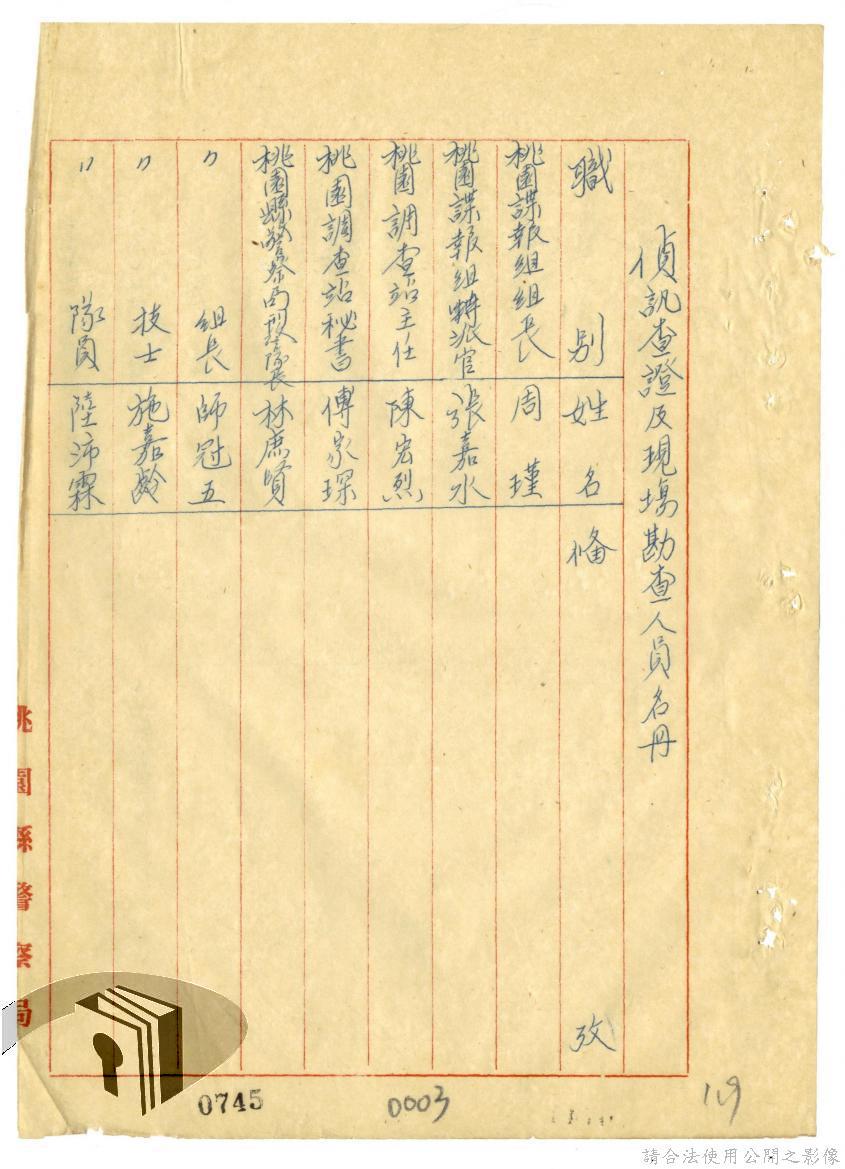 偵訊查證及現場勘查人員名冊
職別 姓名 備攷
桃園諜報組組長 周瑾
桃園諜報組特派官 張嘉水
桃園調查站主任 陳宏烈
桃園調查站秘書 傅家琛
桃園縣警察局刑警隊長 林庶賢
〃 組長 師冠五
〃 技士 施嘉齡
〃 隊員 陸沛霖
桃園縣警察局
0745
0003
請合法使用公開之影像